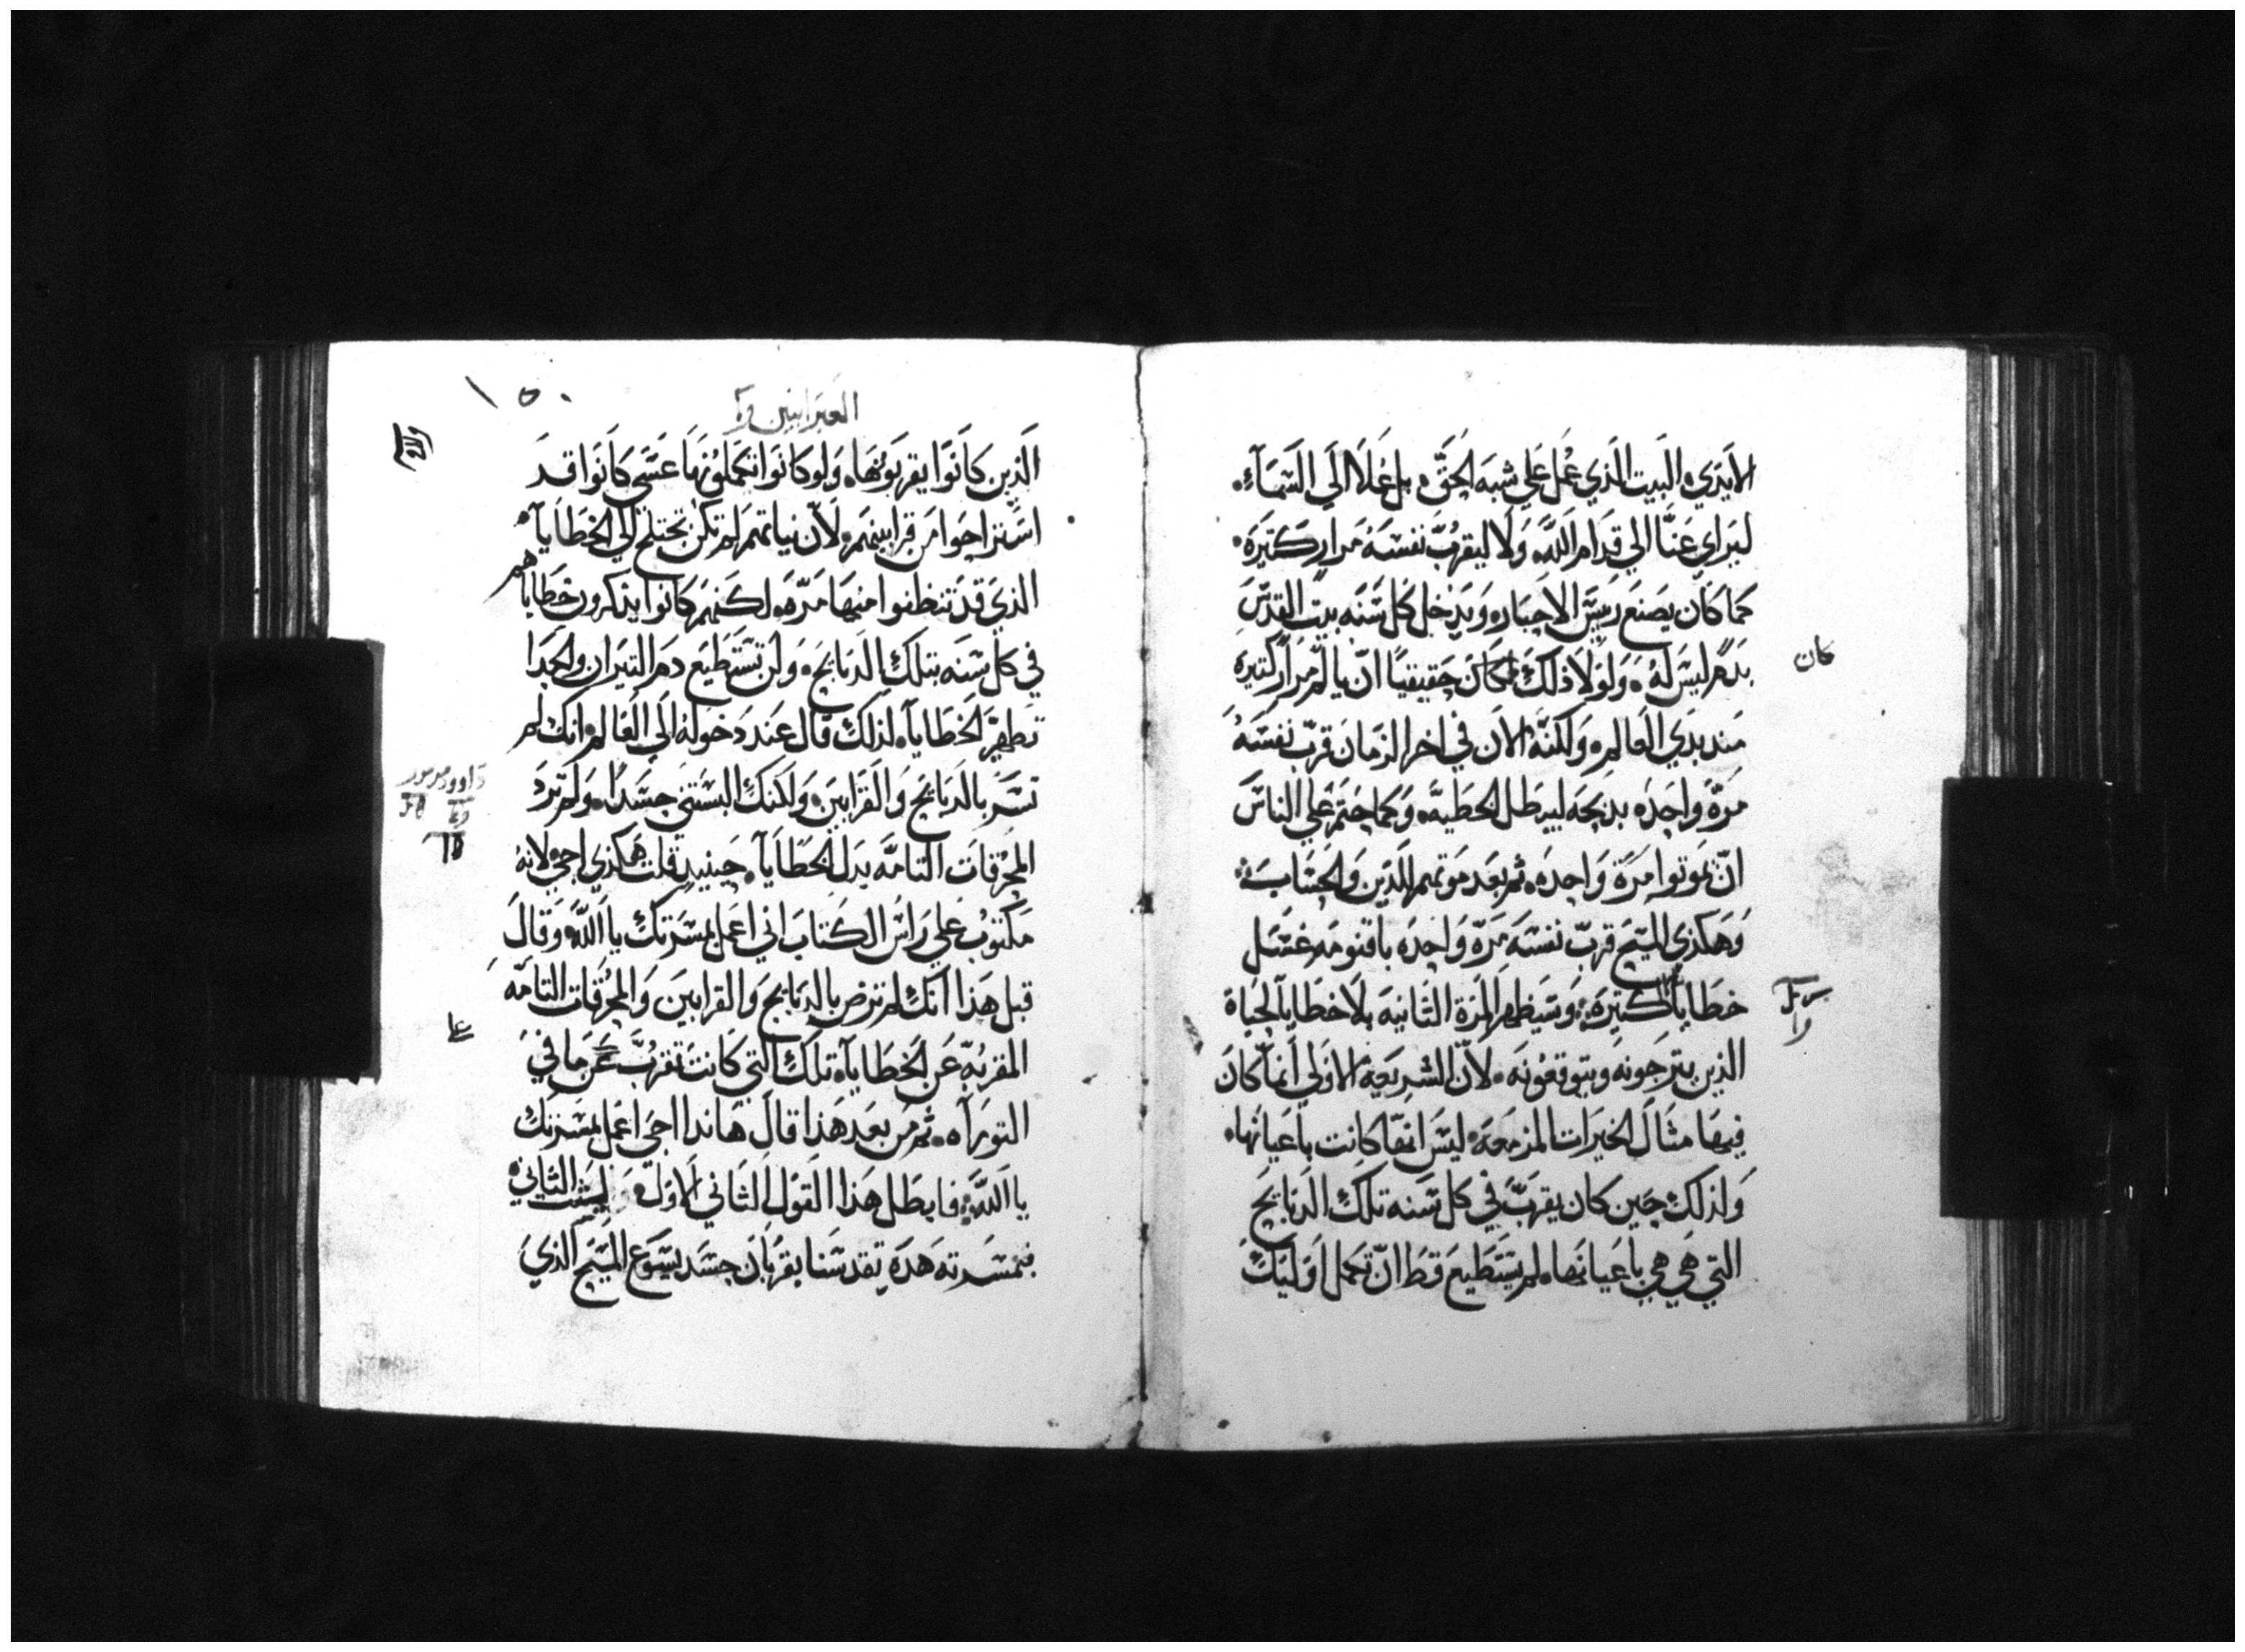 الايدي، البيت الذي عُمل علي شبه الحقّ، بل عَلا الي السَمآءِ،
ليَراي عَنّا الي قدام الله، وَلا ليقرّب نفسَهُ مرارٍ كتيرَه،
كما كان يصَنع رييسَ الاحبار، وَيدخل كل سَنَه بيت القدسَ
بدمٍ ليسَ لهُ، وَلوَلا ذلكَ لكانَ حقيقيًا انّ يالم مرَارٍ كتيره
كان
مند بدي العالم، وَلكنَّهُ الان في اخر الزمان قرّب نفسَهُ
مرّةً واحِدَه بدبحَه ليبطل الخطيَّه، وَكما حتم علي الناسَ
انّ يموَتوا مرَةً وَاحدَه، ثم بعَد مَوَتهم الدَين وَالحسَابَ،
وَهَكذي المسَيح قرّب نفسَهُ مَرّه وَاحِدَه باقنومَه غسَل
خطايانا كتيرَه، وَسَيظهر المرَة الثَانيَه بلا خطايا لحيَاة
الذين يترجونه ويتوقعونَه، لانّ الشريَعَه الاولي انما كان
فيهَا مثالَ الخيرَات المزمعَه، ليسَ انها كانت باعيانها،
وَلذلك حَين كان يقربّ في كل سَنه تلكَ الدبايحَ
التي هَي هي باعيَانها، لم يستَطيعَ قط انّ تكمل اوَليَكَ
العبرانيين
١٥٠
الَذين كانوا يقربوَنها، وَلو كانوَا تكملوَا بها عسَي كانَوا قدَ
اسَتراحوَا من قرابينهمَ، لان نياتهم لم تكن تختلج الي الخطايآ،
الذي قدَ تنظفوا منها مَرّه، لكَنهم كانوا يذكرون خطايا
هم
في كل سَنه بتلكَ الدبايحَ، وَلن تستَطيَع دم التيرَان والجدَا
تطهرّ الخطايآ، لذلك قال عَند دَخوله الَي العَالم، انك لم
تسَرّ بالدَبايح وَالقَرابين، وَلكنكَ البسَتني جسَدًا، وَلم ترَدَ
داوود مزمور
المحرُقاتَ التامّه بدل الخطايآ، حينيدٍ قلت هَكذي اجي، لانهُ
مكتوَبُ علي رَاسَ الكتابَ اني اعَمل بمسَرَتكَ يا الله، وَقالَ
قبل هَذا انكَ لم ترَض بالدبايح وَالقرابين وَالمحرُقات التامّه
المقربّه عَن الخطايآ، تلكَ التي كانت تقرّب عَن ما في
التورَآه، ثم من بعَد هَذا قال هَاندا اجي اعمل بمسَرتكَ
يا الله، فابطل هَذا القوَل الثاني الاوَل، ليثبت الثاني،
فبمسَرته هَدَه تقدسَنا بقرُبان جسَد يسَوَع المسَيح الذي